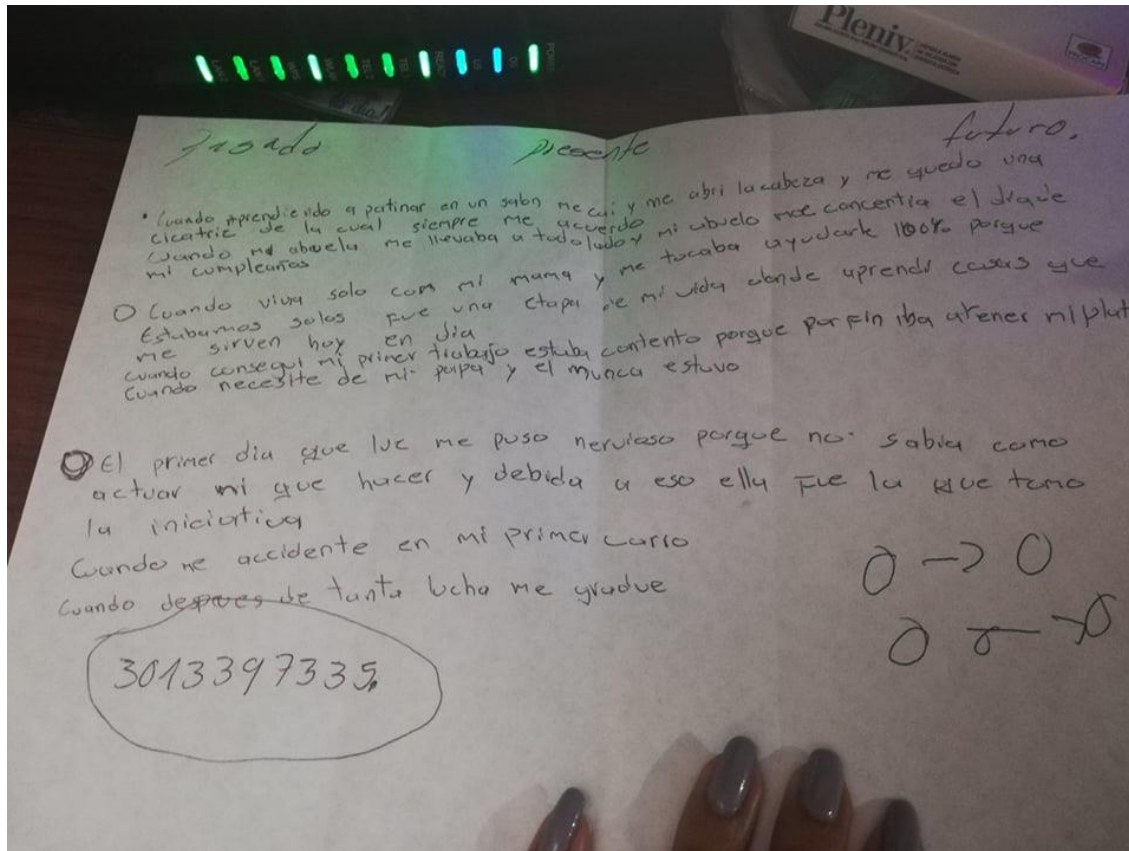 Pleniv
PROCAPS
POWER
DS
US
TEL1
TEL2
WLAN
WPS
LAN
LAN
Pasado presente futuro.
• Cuando aprendiendo a patinar en un salon me cai y me abri la cabeza y me quedo una
cicatriz de la cual siempre me acuerdo
cuando mi abuela me llevaba a todo lado y mi abuelo me concentia el dia de
mi cumpleaños
O Cuando vivia solo com mi mama y me tocaba ayudarle 100% porque
Estabamos solos fue una etapa de mi vida donde aprendi cosas que
me sirven hoy en dia
cuando consegui mi primer trabajo estaba contento porque por fin iba atener mi plat
Cuando necesite de mi papa y el munca estuvo
O El primer dia que me puso nervioso porque no sabia como
actuar ni que hacer y debida a eso ella fue la que tomo
la iniciativa
Cuando me accidente en mi primer carro
Cuando despues de tanta lucha me gradue
O -> O
3013397335.